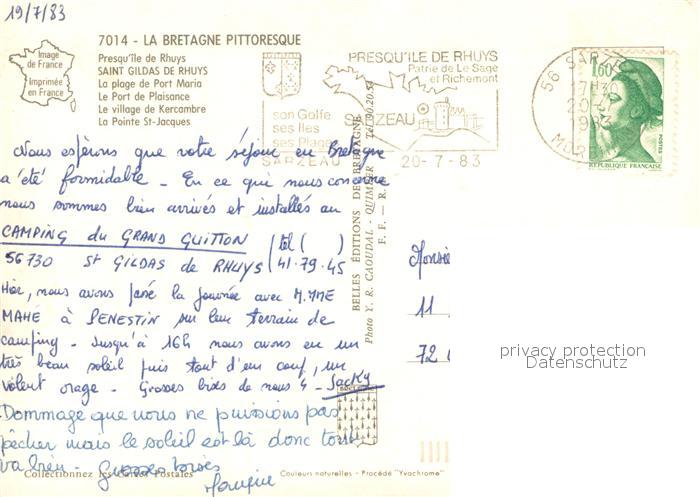 19/7/83
7014 - LA BRETAGNE PITTORESQUE
Image
de France
Imprimée
en France
Presqu'île de Rhuys
SAINT GILDAS DE RHUYS
La plage de Port Maria
Le Port de Plaisance
Le village de Kercambre
La Pointe St-Jacques
son Golfe
ses Iles
ses Plages
SARZEAU
PRESQU'ILE DE RHUYS
Patrie de Le Sage
et Richemont
SARZEAU
20-7-83
56 SARZEAU
17H30
20-7
1983
MORBIHAN
1,60
POSTES
REPUBLIQUE FRANÇAISE
Nous espérons que votre séjour en Bretagne
a été formidable - En ce qui nous concerne
nous sommes bien arrivés et installés au
CAMPING du GRAND GUITTON
tél ( )
56730 St GILDAS de RHUYS
41.79.45
Hier, nous avons passé la journée avec M. MME
MAHÉ à PENESTIN sur leur terrain de
camping - Jusqu'à 16h nous avons eu un
très beau soleil puis tout d'un coup, un
violent orage - Grosses bises de nous 4 - Jacky
Dommage que nous ne puissions pas
pêcher mais le soleil est là donc tout
va bien - Grosses bises
BELLES ÉDITIONS DE BRETAGNE
Photo Y. R. CAOUDAL - QUIMPER
F. F. - R.
BRETAGNE
Monsie
11
72
privacy protection
Datenschutz
Collectionnez les Cartes Postales
Couleurs naturelles - Procédé "Yvachrome"